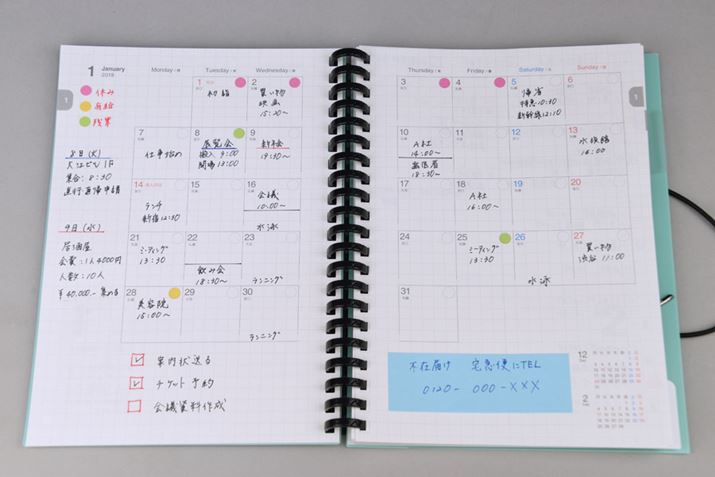 1 January
2019
休み
有給
残業
Monday / 月
Tuesday / 火
Wednesday / 水
1
初詣
2
買い物
映画
15:20〜
7
仕事始め
8
展覧会
搬入 9:00
開場 13:00
9
新年会
19:30〜
8日(火)
大江ビル 1F
集合: 8:30
直行・直帰申請
14
ランチ
新宿 12:30
15
16
会議
10:00〜
水泳
9日(水)
居酒屋
会費: 1人4000円
人数: 10人
¥40,000- 集める
21
ミーティング
13:30
22
飲み会
18:30〜
23
ランニング
28
美容院
15:00〜
29
30
ランニング
案内状送る
チケット予約
会議資料作成
Thursday / 木
Friday / 金
Saturday / 土
Sunday / 日
3
4
5
帰省
特急 10:30
新幹線 12:10
6
10
A社
14:00〜
出張
18:30〜
11
12
13
水族館
16:00
17
18
A社
16:00〜
19
20
24
25
ミーティング
13:30
26
水泳
27
買い物
渋谷 11:00
31
不在届け 宅急便にTEL
0120-000-XXX
12
2